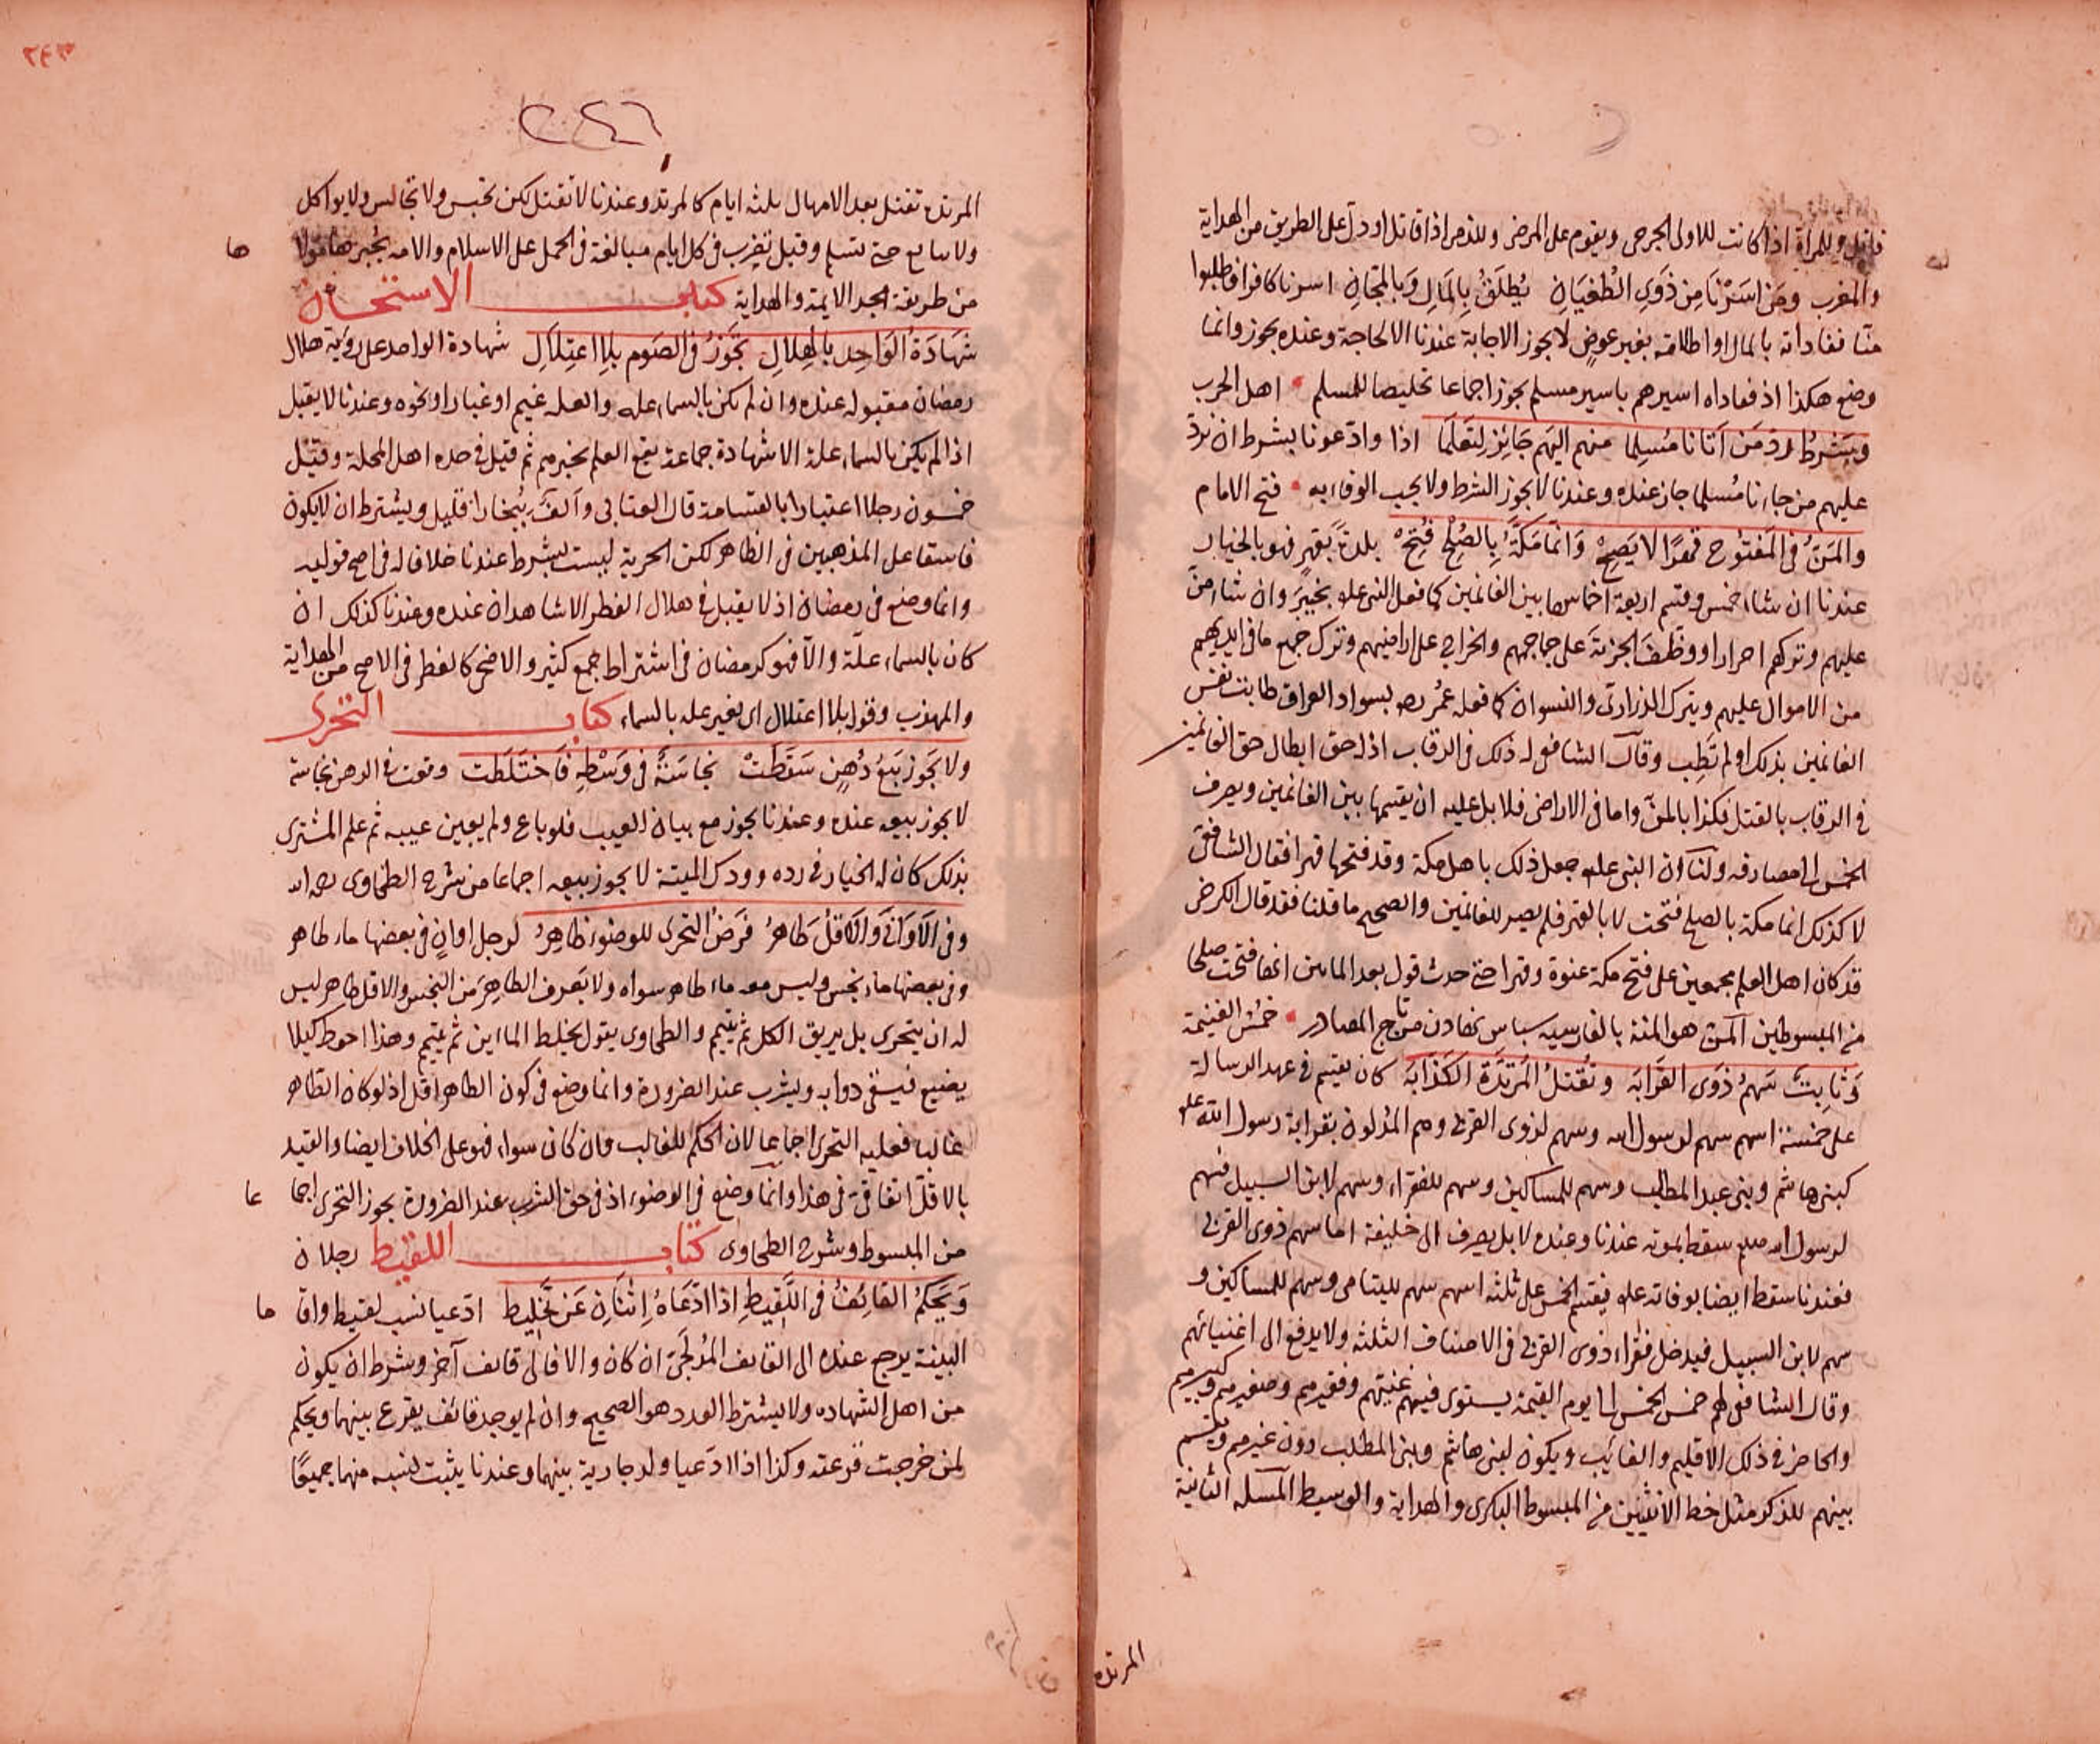 قاتل وللمرأة اذا كانت للاولى الجرحى ويقوم على المرضى وللذمى اذا قاتل او دل على الطريق من الهداية
والمغرب ومن اسَرْنَا مِن ذَوِي الطُغيَانِ يُطلَقُ بِالمَالِ وَبِالمَجَّانِ اسرنا كافرا فطلبوا
منا مفاداته بالمال او اطلاقه بغير عوضٍ لا يجوز الاجابة عندنا الا لحاجة وعنده يجوز وانما
وضع هكذا اذ فعاداه اسيرهم باسير مسلم يجوز اجماعا تخليصا للمسلم اهل الحرب
وبشرط ردّ مَن اَتانا مُسلِما منهم اليهم جَائِز لِتعَلمَا اذا وادعونا بشرط ان نردّ
عليهم من جاءنا مُسلما جاز عنده وعندنا لا يجوز الشرط ولا يجب الوفاء به فتح الامام
والمَنّ في المَفتُوح قهرًا لا يَصِحْ وَانمَا مَكَّةُ بِالصُلْحِ فُتِحْ بلدة بقهرٍ فهو بالخيار
عندنا ان شاء خمس وقسم اربعة اخماسها بين الغانمين كما فعل النبى علم بخيبَر وان شاء منّ
عليهم وتركهم احرارا ووظّفَ الجزيةَ على جماجمهم والخراج على اراضيهم وترك جميع ما فى ايديهم
من الاموال عليهم ويترك الذرارى والنسوان كما فعله عُمر رضه بسواد العراق طابت نفس
الغانمين بذلك او لم تَطِب وقال الشافعى له ذلك فى الرقاب اذ له حق ابطال حق الغانمين
فى الرقاب بالقتل فكذا بالمنّ واما فى الاراضى فلا بل عليه ان يقسمها بين الغانمين ويصرف
الخمس الى مصارفه ولنا ان النبى علم جعل ذلك باهل مكة وقد فتحها قهرا فقال الشافعى
لا كذلك انما مكة بالصلح فُتحت لا بالقهر فلم يصر للغانمين والصحيح ما قلنا فقد قال الكرخى
قد كان اهل العلم مجمعين على فتح مكة عنوة وقهرا حتى حدث قول بعد المايتين انها فتحت صلحا
من المبسوطين المنّ هو المنة بالفارسية سپاس نهادن من تاج المصادر خمُسُ الغنيمة
وَثابِتٌ سَهمُ ذوَى القَرابَه وتُقتلُ المُرتَدَّة الكَذّابَه كان يقسم فى عهد الرسالة
على خمسة اسهم سهم لرسول الله وسهم لذوى القربى وهم المُدلون بقرابة رسول الله علم
كبنى هاشم وبنى عبد المطلب وسهم للمساكين وسهم للفقراء وسهم لابن السبيل فسهم
لرسول الله صلعم سقط بموته عندنا وعنده لا بل يصرف الى خليفة اما سهم ذوى القربى
فعندنا سقط ايضا بوفاته علم فيقسم الخمس على ثلثه اسهم سهم لليتامى وسهم للمساكين و
سهم لابن السبيل فيدخل فقراء ذوى القربى فى الاصناف الثلثه ولا يدفع الى اغنيائهم
وقال الشافعى لهم خمس الخمس الى يوم القيمة يستوى فيهم غنيّهم وفقيرهم وصغيرهم وكبيرهم
والحاضر فى ذلك الاقليم والغائب ويكون لبنى هاشم وبنى المطلب دون غيرهم ويقسم
بينهم للذكر مثل حظ الانثيين من المبسوط البكرى والهداية والوسيط المسئله الثانية
المرتده
٢٤٦
المرتدة تقتل بعد الامهال ثلثه ايام كالمرتد وعندنا لا تقتل لكن تحبس ولا تجالس ولا يواكل
ولا يبايع حتى تسلم وقيل تضرب فى كل ايام مبالغة فى الحمل على الاسلام والامه يجبرها مولا
ها
من طريقة مجد الايمة والهداية كتاب الاستحسان
شَهَادَةُ الوَاحِدِ بالهِلالِ تَجَوزُ فى الصَوم بلا اعتِلاَلِ شهادة الواحد على رؤية هلال
رمضان مقبوله عنده وان لم تكن بالسماء عله والعله غيم او غبار او نحوه وعندنا لا يقبل
اذا لم يكن بالسماء علة الا شهادة جماعة يقع العلم بخبرهم ثم قيل فى حده اهل المحلة وقيل
خمسون رجلا اعتبارا بالقسامة قال العتابى والفٌ ببُخارا قليل ويشترط ان لا يكون
فاسقا على المذهبين فى الظاهر لكن الحرية ليست بشرط عندنا خلافا له فى اصح قوليه
وانما وضع فى رمضان اذ لا يقبل فى هلال الفطر الا شاهدان عنده وعندنا كذلك ان
كان بالسماء علّة والّا فهو كرمضان فى اشتراط جمع كثير والاضحى كالفطر فى الاصح من الهداية
والمهذب وقوله بلا اعتلال اى بغير عله بالسماء كتاب التحرى
ولا يَجَوز بَيعُ دُهنٍ سَقَطَتْ نجاسَةٌ فى وَسْطِهِ فَاختَلَطَت وقعت فى الدهن نجاسة
لا يجوز بيعه عنده وعندنا يجوز مع بيان العيب فلو باع ولم يبين عيبه ثم علم المشترى
بذلك كان له الخيار فى رده وودك الميتة لا يجوز بيعه اجماعا من شرح الطحاوى رحمه الله
وفى الاَوَانى وَالاقلّ طَاهرُ فرَضُ التحرى للوضوء ظاهِرُ لرجل اوانٍ فى بعضها ماء طاهر
وفى بعضها ماء نجس وليس معه ماء طاهر سواه ولا يَعرف الطاهِرَ من النجس والاقل طاهر ليس
له ان يتحرى بل يريق الكل ثم يتيمم والطحاوى يقول يخلط الماءين ثم يتيمم وهذا احوط كيلا
يضيع فيسقى دوابه ويشرب عند الضرورة وانما وضع فى كون الطاهر اقل اذ لو كان الطاهر
غالبا فعليه التحرى اجماعا لان الحكم للغالب فان كان سواء فهو على الخلاف ايضا والقيد
بالاقلّ اتفاقى فى هذا وانما وضع فى الوضوء اذ فى حق الشرب عند الضرورة يجوز التحرى اجما
عا
من المبسوط وشرح الطحاوى كتاب اللقيط رجلان
وَيَحكمُ القائِفُ فى اللَّقِيطِ اذا ادَّعَاهُ اِثنَانِ عَن تخلِيط ادعيا نسب لقيط واقا
ما
البينة يرجع عنده الى القايف المُدلجىّ ان كان والا فالى قايف آخر وشرط ان يكون
من اهل الشهاده ولا يشترط العدد هو الصحيح وان لم يوجد قائف يقرع بينهما ويحكم
لمن خرجت قرعته وكذا اذا ادّعيا ولد جارية بينهما وعندنا يثبت نسبه منهما جميعًا